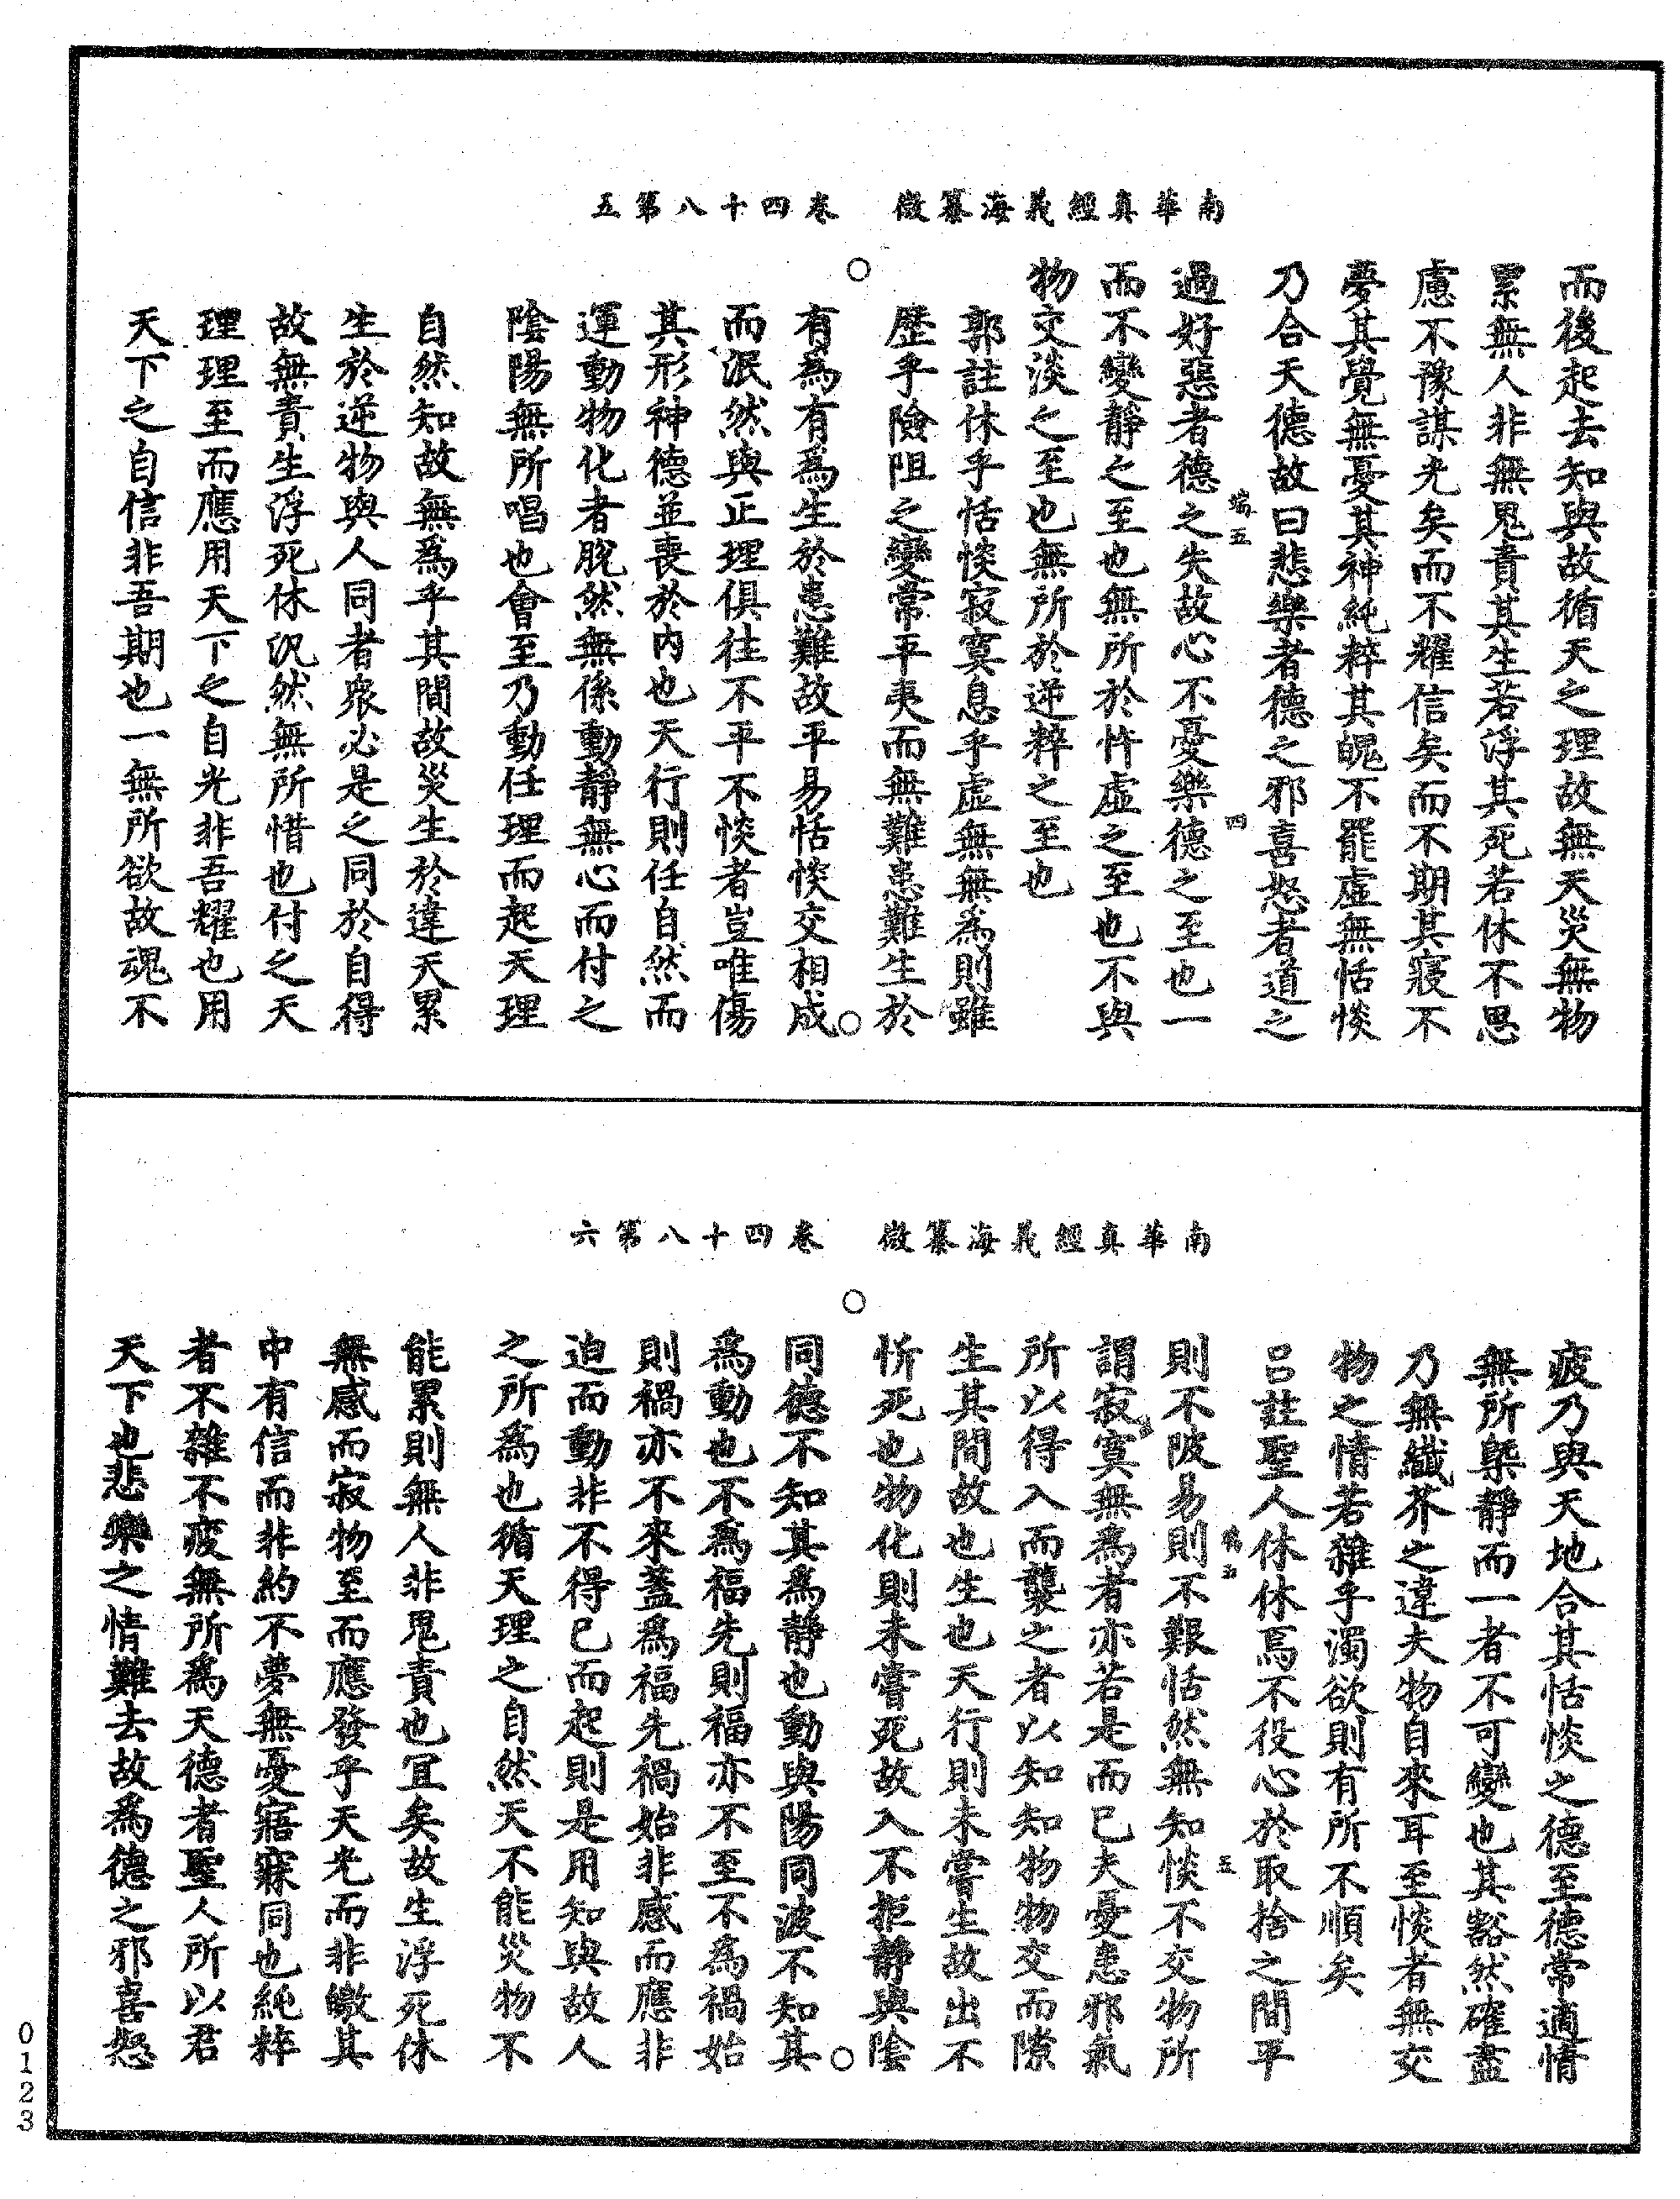 南華真經義海纂微　卷四十八第五
而後起去知與故循天之理故無天災無物
累無人非無鬼責其生若浮其死若休不思
慮不豫謀光矣而不耀信矣而不期其寢不
夢其覺無憂其神純粹其魄不罷虛無恬惔
乃合天德故曰悲樂者德之邪喜怒者道之
端五　四
過好惡者德之失故心不憂樂德之至也一
而不變靜之至也無所於忤虛之至也不與
物交淡之至也無所於逆粹之至也
郭註休乎恬惔寂寞息乎虛無無為則雖
歷乎險阻之變常平夷而無難患難生於
有為有為生於患難故平易恬惔交相成
而泯然與正理俱往不平不惔者豈唯傷
其形神德並喪於內也天行則任自然而
運動物化者脫然無係動靜無心而付之
陰陽無所唱也會至乃動任理而起天理
自然知故無為乎其間故災生於違天累
生於逆物與人同者衆必是之同於自得
故無責生浮死休汎然無所惜也付之天
理理至而應用天下之自光非吾耀也用
天下之自信非吾期也一無所欲故魂不
南華真經義海纂微　卷四十八第六
疲乃與天地合其恬惔之德至德常適情
無所槩靜而一者不可變也其豁然確盡
乃無纖芥之違夫物自來耳至惔者無交
物之情若雜乎濁欲則有所不順矣
呂註聖人休休焉不役心於取捨之間平
端五　五
則不陂易則不艱恬然無知惔不交物所
謂寂寞無為者亦若是而已夫憂患邪氣
所以得入而襲之者以知知物物交而隙
生其間故也生也天行則未嘗生故出不
忻死也物化則未嘗死故入不拒靜與陰
同德不知其為靜也動與陽同波不知其
為動也不為福先則福亦不至不為禍始
則禍亦不來蓋為福先禍始非感而應非
迫而動非不得已而起則是用知與故人
之所為也循天理之自然天不能災物不
能累則無人非鬼責也宜矣故生浮死休
無感而寂物至而應發乎天光而非皦其
中有信而非約不夢無憂寤寐同也純粹
者不雜不疲無所為天德者聖人所以君
天下也悲樂之情難去故為德之邪喜怒
0123